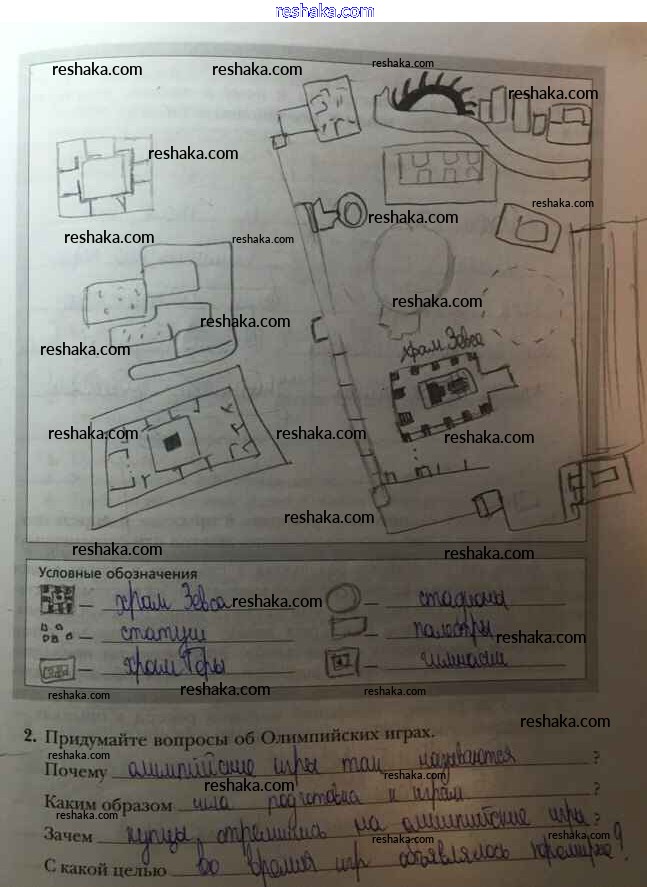 reshaka.com
reshaka.com reshaka.com reshaka.com
reshaka.com
reshaka.com
reshaka.com
reshaka.com
reshaka.com reshaka.com
reshaka.com
reshaka.com
reshaka.com
храм Зевса
reshaka.com reshaka.com reshaka.com
reshaka.com
reshaka.com reshaka.com
Условные обозначения
– храм Зевса reshaka.com – стадиона
– статуи – палестры reshaka.com
– храм Геры – гимнасии
reshaka.com reshaka.com reshaka.com
reshaka.com
2. Придумайте вопросы об Олимпийских играх.
reshaka.com
Почему олимпийские игры так называются ?
reshaka.com reshaka.com
Каким образом шла подготовка к играм ?
reshaka.com
Зачем купцы стремились на олимпийские игры ?
reshaka.com reshaka.com
С какой целью во время игр объявлялось ?
reshaka.com reshaka.com